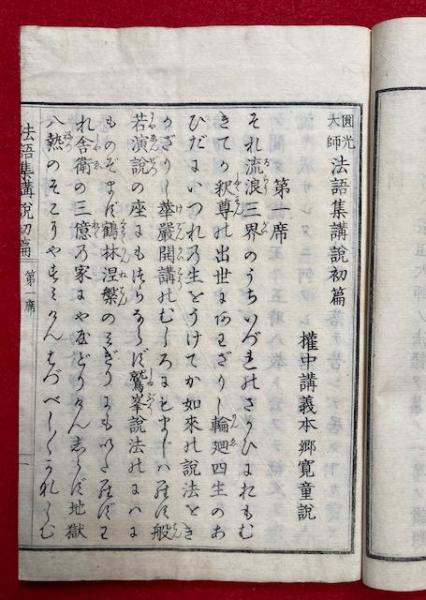 圓光大師 法語集講説初篇
權中講義本郷寛童説
第一席
それ流浪三界のうちいづれのさかひにおもむ
きてか釈尊の出世にあはざりし輪廻四生のあ
ひだいづれの生をうけてか如来の説法をき
かざりし華嚴開講のむしろにもまじはらず般
若演説の座にもつらならず鷲峯説法のにはに
ものぞまず鶴林涅槃のみぎりにもいたらずわ
れ舎衛の三億の家にややどりけんしらず地獄
八熱のそこにやすみけんはづべし〱かなしむ
法語集講説初篇 第一席